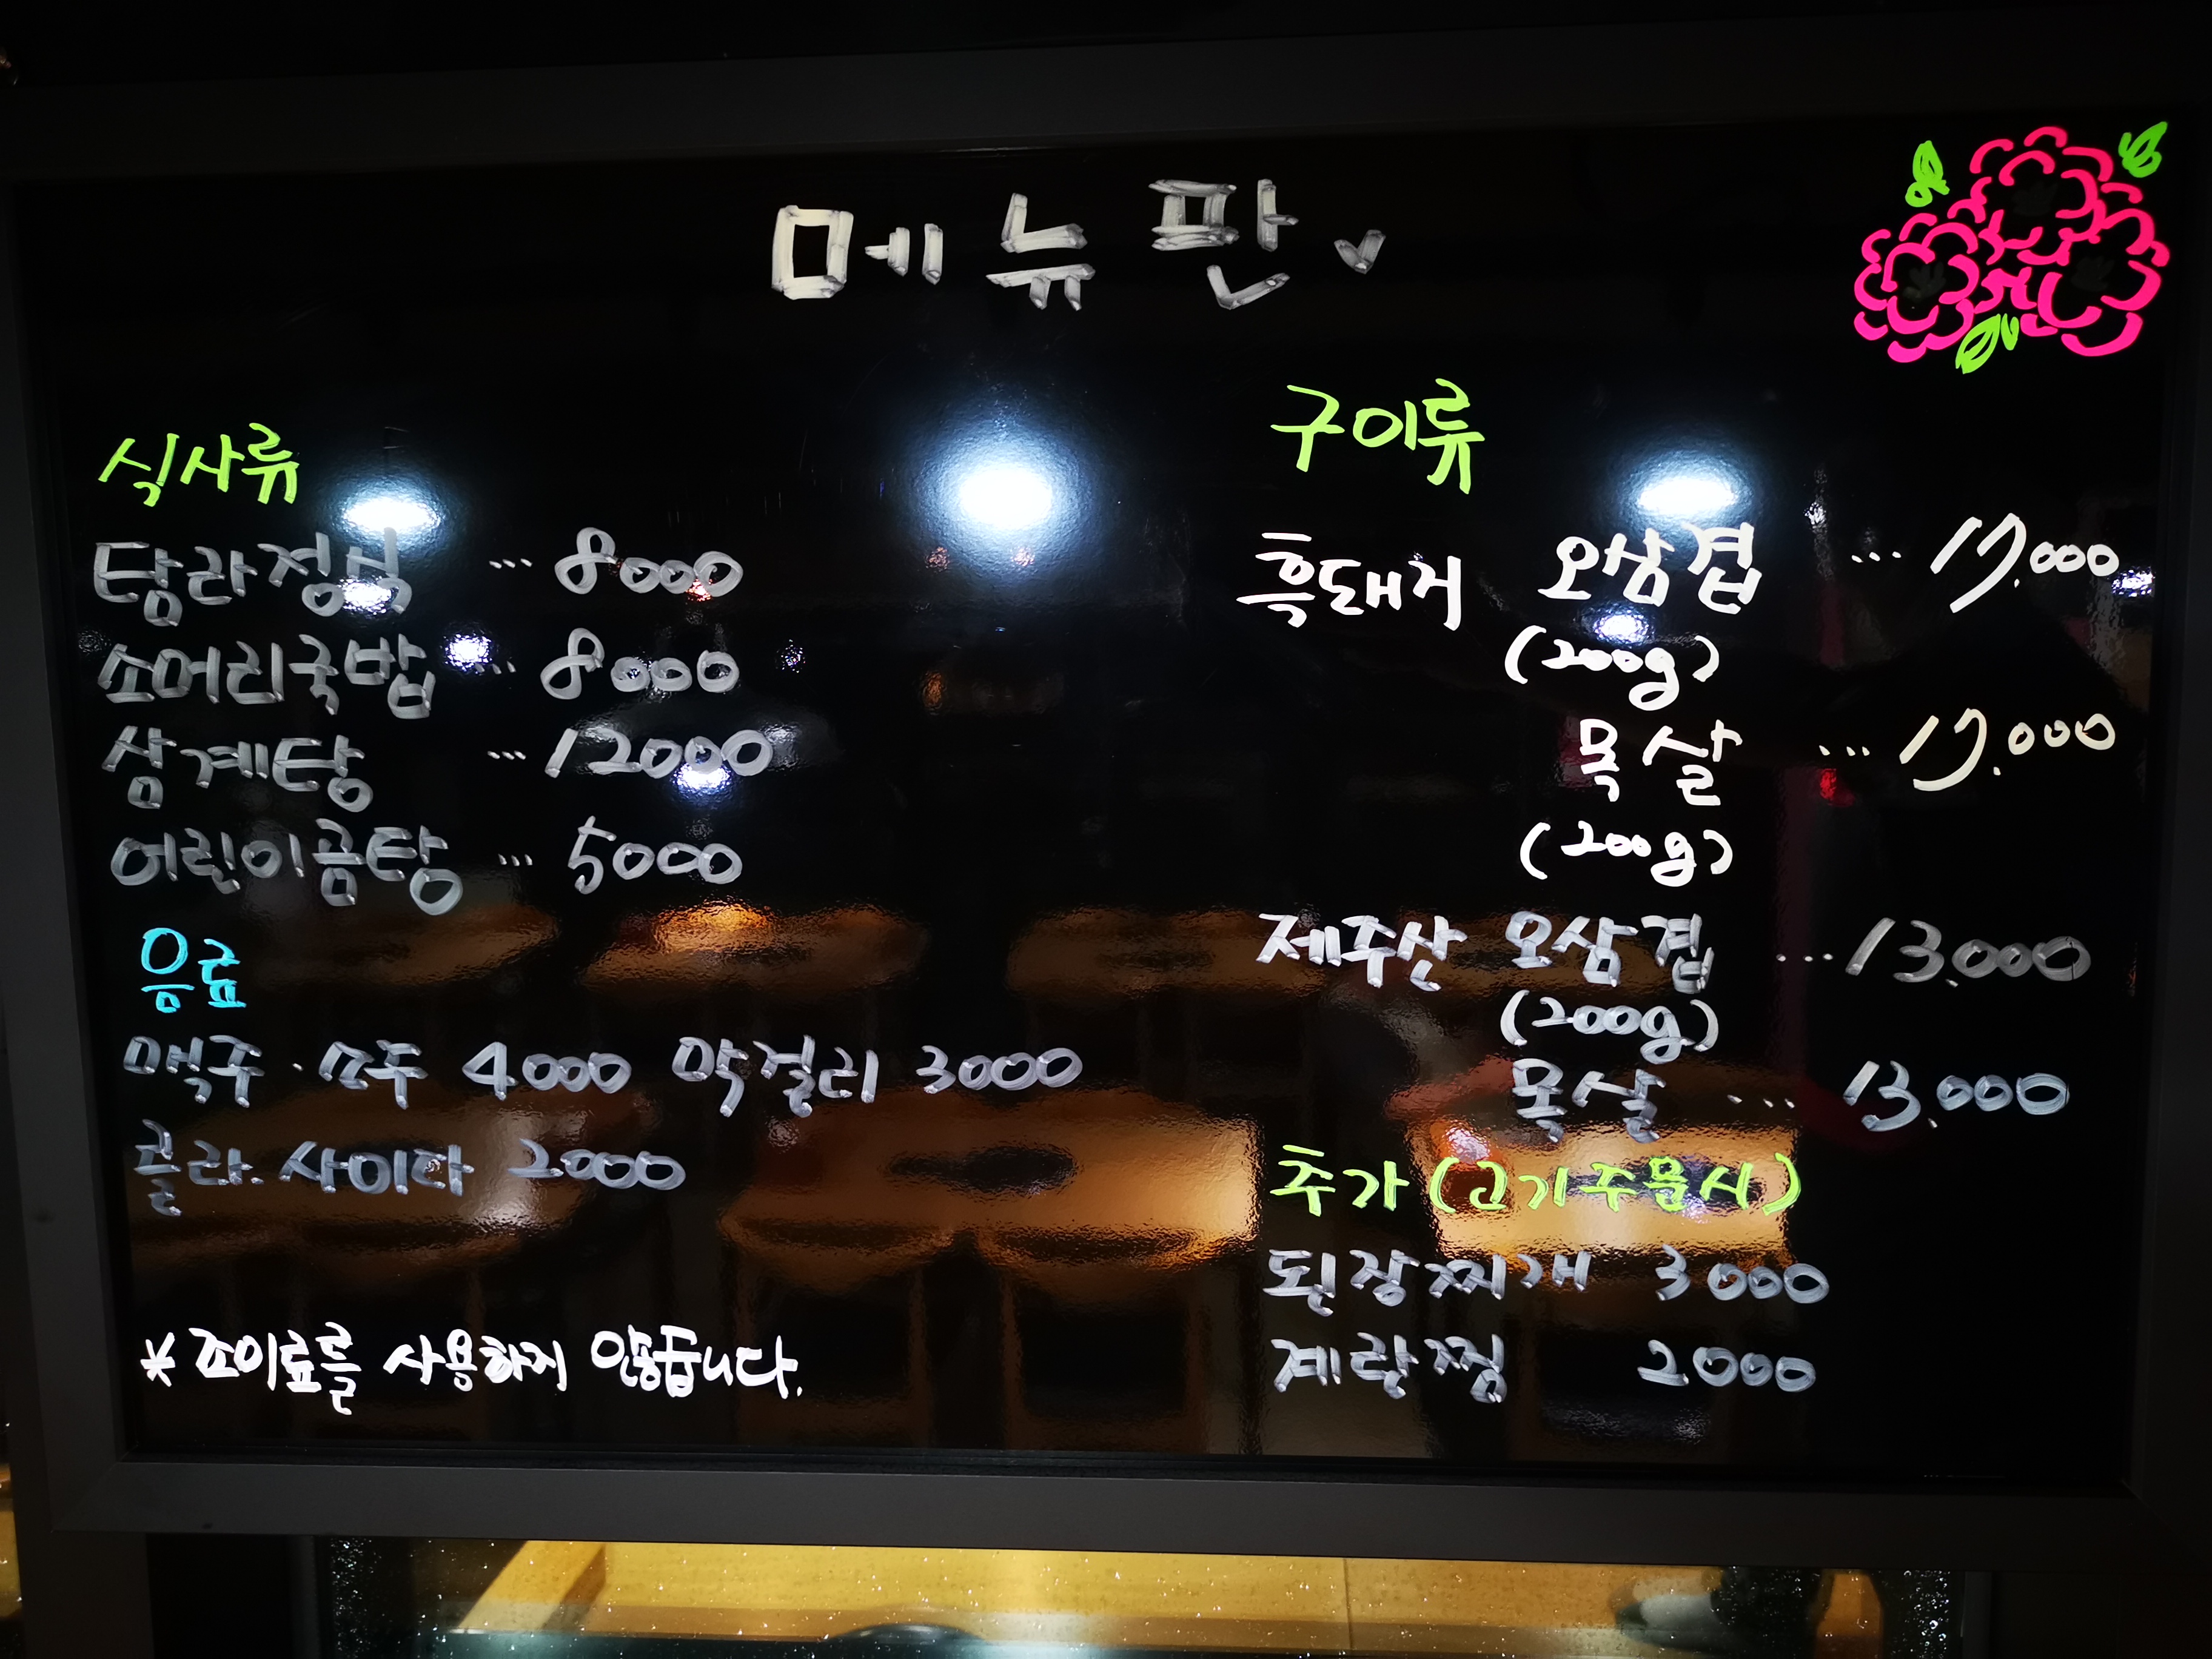 메뉴판
식사류
탐라정식 ... 8000
소머리국밥 ... 8000
삼계탕 ... 12000
어린이곰탕 ... 5000
음료
맥주 · 소주 4000 막걸리 3000
콜라. 사이다 2000
* 조미료를 사용하지 않습니다.
구이류
흑돼지 오삼겹 ... 17.000
(200g)
목살 ... 17.000
(200g)
제주산 오삼겹 ... 13.000
(200g)
목살 ... 13.000
추가 (고기주문시)
된장찌개 3000
계란찜 2000